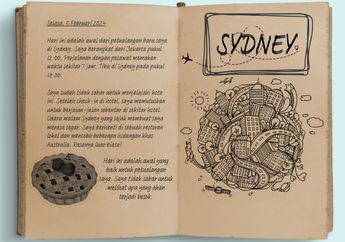 Selasa, 6 Februari 2024
Hari ini adalah awal dari petualangan baru saya
di Sydney. Saya berangkat dari Jakarta pukul
12.00. Perjalanan dengan pesawat memakan
waktu sekitar 7 jam. Tiba di Sydney pada pukul
19.00.
Saya sudah tidak sabar untuk menjelajahi kota
ini. Setelah check-in di hotel, saya memutuskan
untuk berjalan-jalan sebentar di sekitar hotel.
Udara malam Sydney yang sejuk membuat saya
merasa segar. Saya berhenti di sebuah restoran
lokal dan mencoba beberapa hidangan khas
Australia. Rasanya luar biasa!
Hari ini adalah awal yang
baik untuk petualangan
saya. Saya tidak sabar untuk
melihat apa yang akan
terjadi besok.
SYDNEY